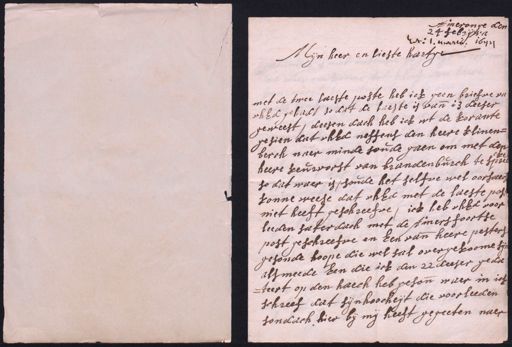 Amerongen den
24 feb
Mijn heer en lieste hartge
met de twee laeste poste heb ick geen briefve va
vhEd gehad so dat de lieste is van 13 deeser
geweest, deesen dach heb ick wt de korante
gesien dat vhEd neffens den heere
berch naer minde soude gaen om met den
heere keurvorst van brandenburch te
so dat waer is, soude het selfve wel oorsaeck
konne weese dat vhEd met de laeste post
niet heeft geschreefve, ick heb vhEd voor
leeden saterdach met de Amersfoortse
post geschreefve en een van heere pesters
gesonde hoope die wel sal overgekoome sijn
als meede een die ick den 22 deeser geda
teert op den haech heb geson waer in ick
schreef dat sijn hoocheijt die voorleeden
sondach hier bij mij heeft gegeeten naer